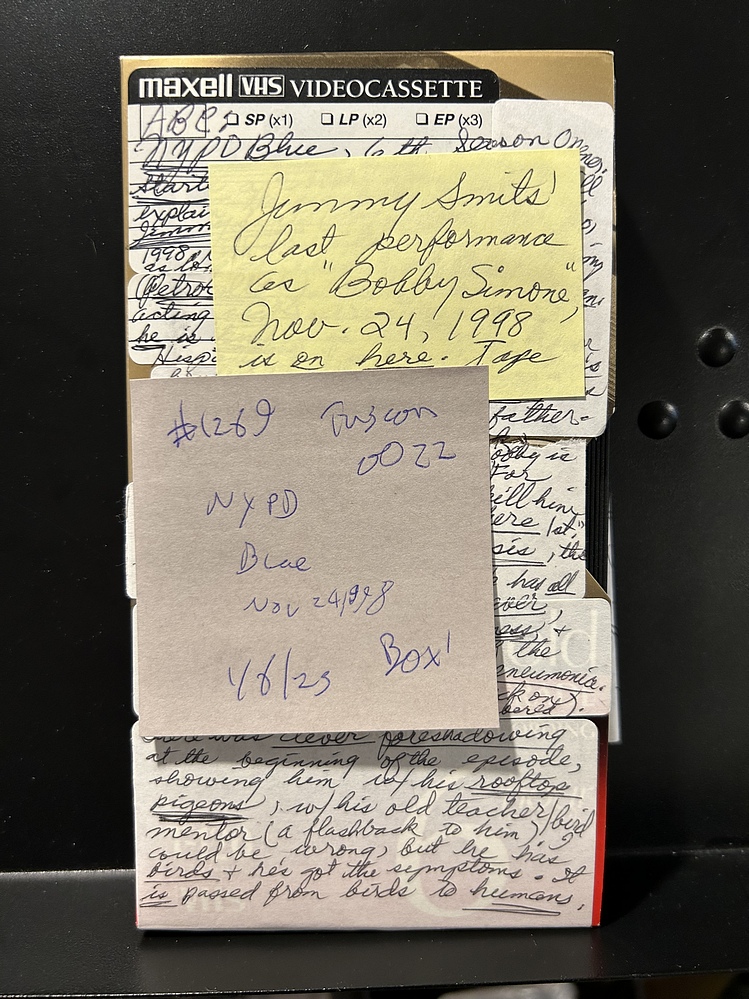 maxell VHS VIDEOCASSETTE
ABC
SP (x1) LP (x2) EP (x3)
NYPD Blue, 6th Season
start
explai
Jimm
1998,
as lon
(Petro
acting
he is
Hispi
Jimmy Smits'
last performance
as "Bobby Simone,"
Nov. 24, 1998
is on here. Tape
father-
bby is
For
kill him
ere 1st."
sis, the
has all
ness, +
the
pneumonia.
#1269 Tuscon
0022
NYPD
Blue
Nov 24, 1998
1/6/23 Box 1
there was clever foreshadowing
at the beginning of the episode,
showing him w/ his rooftop
pigeons, w/ his old teacher/bird
mentor (a flashback to him). I
could be wrong, but he has
birds + he's got the symptoms. It
is passed from birds to humans.